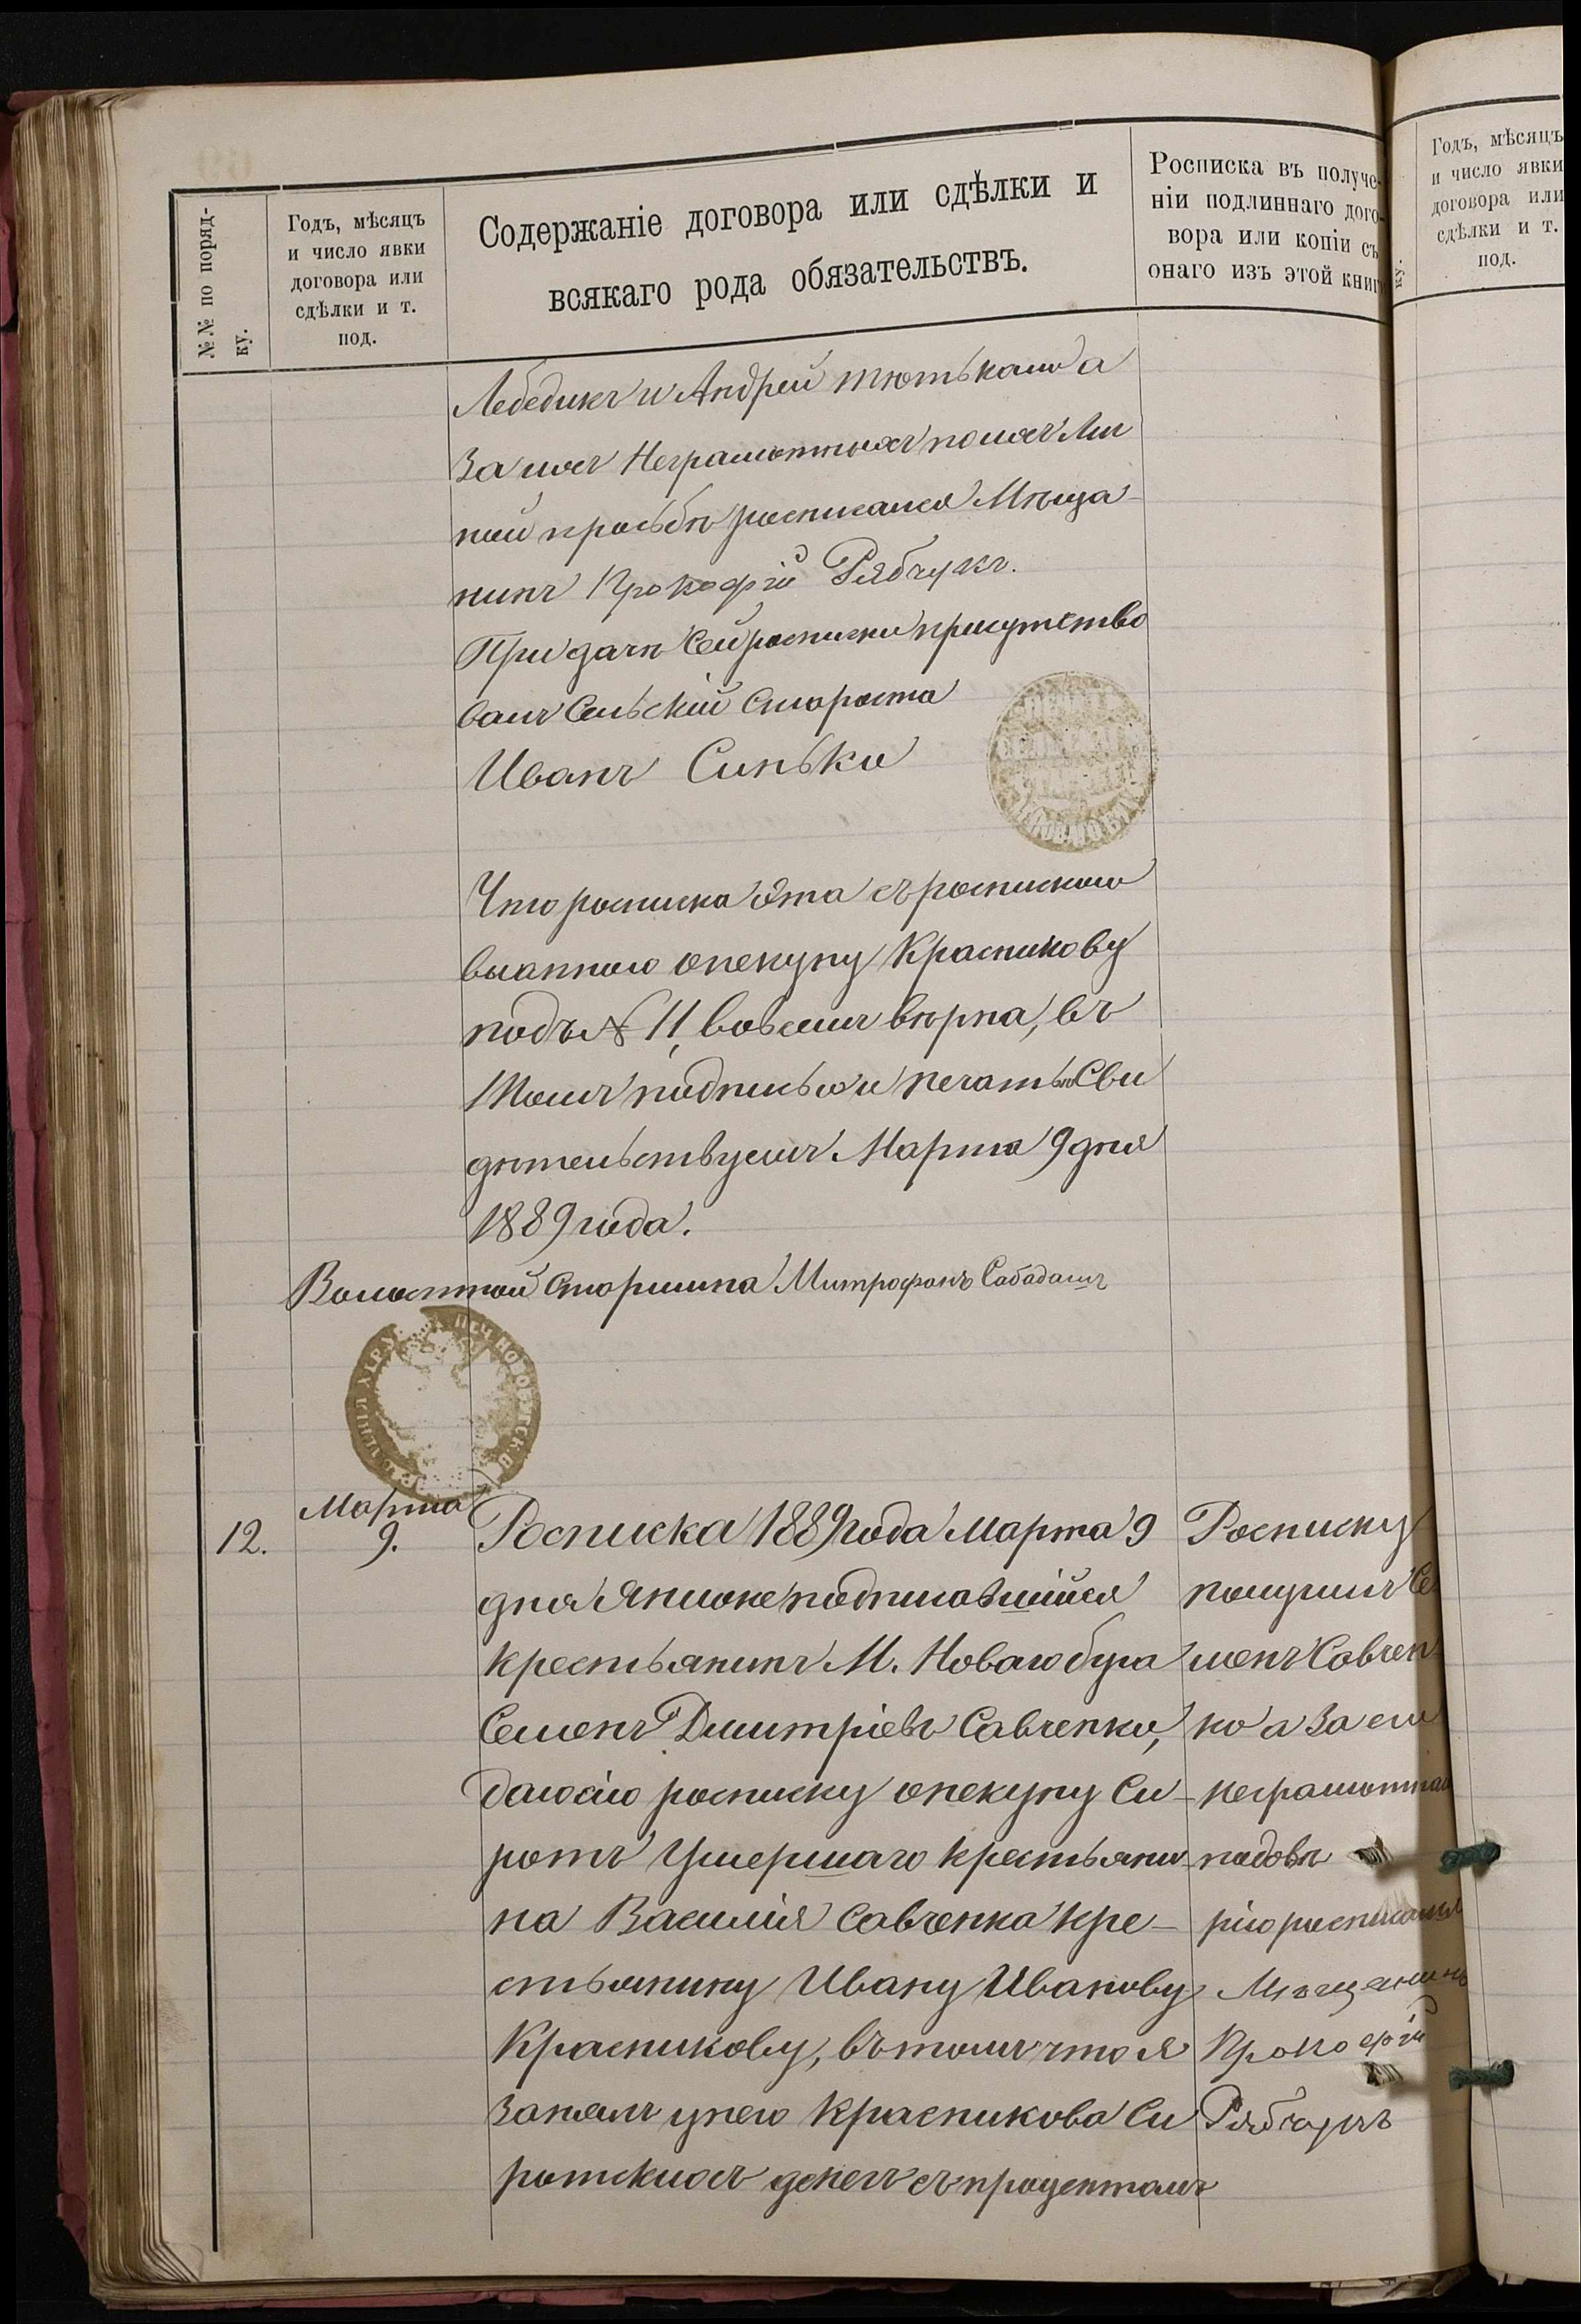 №№ по поряд-
ку.
Годъ, мѣсяцъ
и число явки
договора или
сдѣлки и т.
под.
Содержаніе договора или сдѣлки и
всякаго рода обязательствъ.
Росписка въ получе-
ніи подлиннаго дого-
вора или копіи съ
онаго изъ этой книг
Лебедикъ и Андрей Тютькало а
за ихъ Неграмотныхъ по ихъ лич
ной просьбѣ росписался Мѣща-
нинъ Прокофій Рябчукъ.
При дачѣ сей росписки присутство
валъ Сельскій Староста
Иванъ Синько
Что росписка эта съ роспискою
выданною опекуну Красникову
подъ № 11, во всемъ вѣрна, въ
томъ подписью и печатью Сви
дѣтельствуемъ Марта 9 дня
1889 года.
Волостной Старшина Митрофанъ Сабадашъ
12.
Марта
9.
Росписка 1889 года Марта 9
дня Я нижеподписавшійся
крестьянинъ М. Новаго буга
Семенъ Дмитріевъ Савченко,
даю сію росписку опекуну Си-
ротъ Умершаго крестьяни-
на Василія Савченка Кре-
стьянину Ивану Иванову
Красникову, въ томъ что я
занялъ у него Красникова Си
ротскихъ денегъ съ процентомъ
Росписку
получилъ Се
менъ Савчен
ко а за его
неграмотнаго
по довѣ
рію росписался
Мѣщанинъ
Прокофій
Рябчукъ
Годъ, мѣсяцъ
и число явки
договора или
сдѣлки и т.
под.